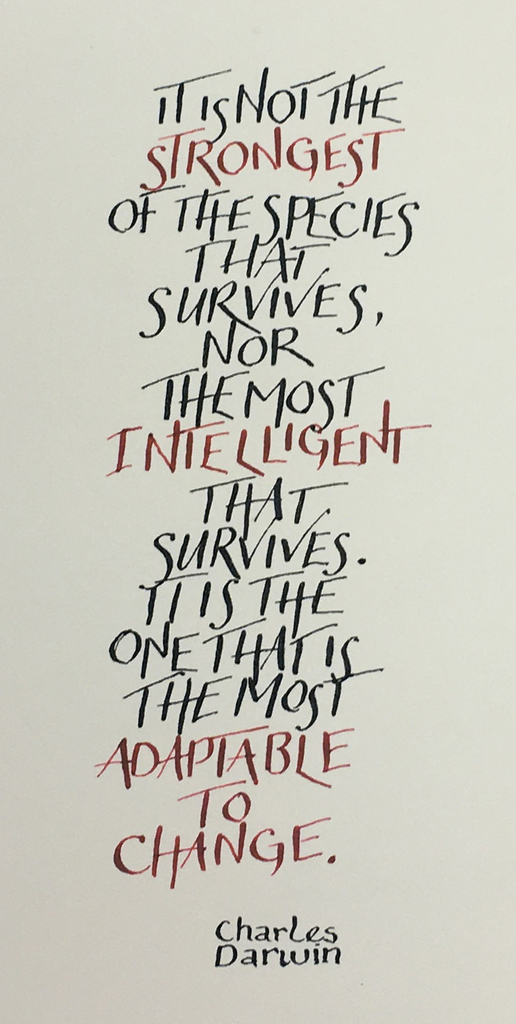 IT IS NOT THE
STRONGEST
OF THE SPECIES
THAT
SURVIVES,
NOR
THE MOST
INTELLIGENT
THAT
SURVIVES.
IT IS THE
ONE THAT IS
THE MOST
ADAPTABLE
TO
CHANGE.
Charles
Darwin